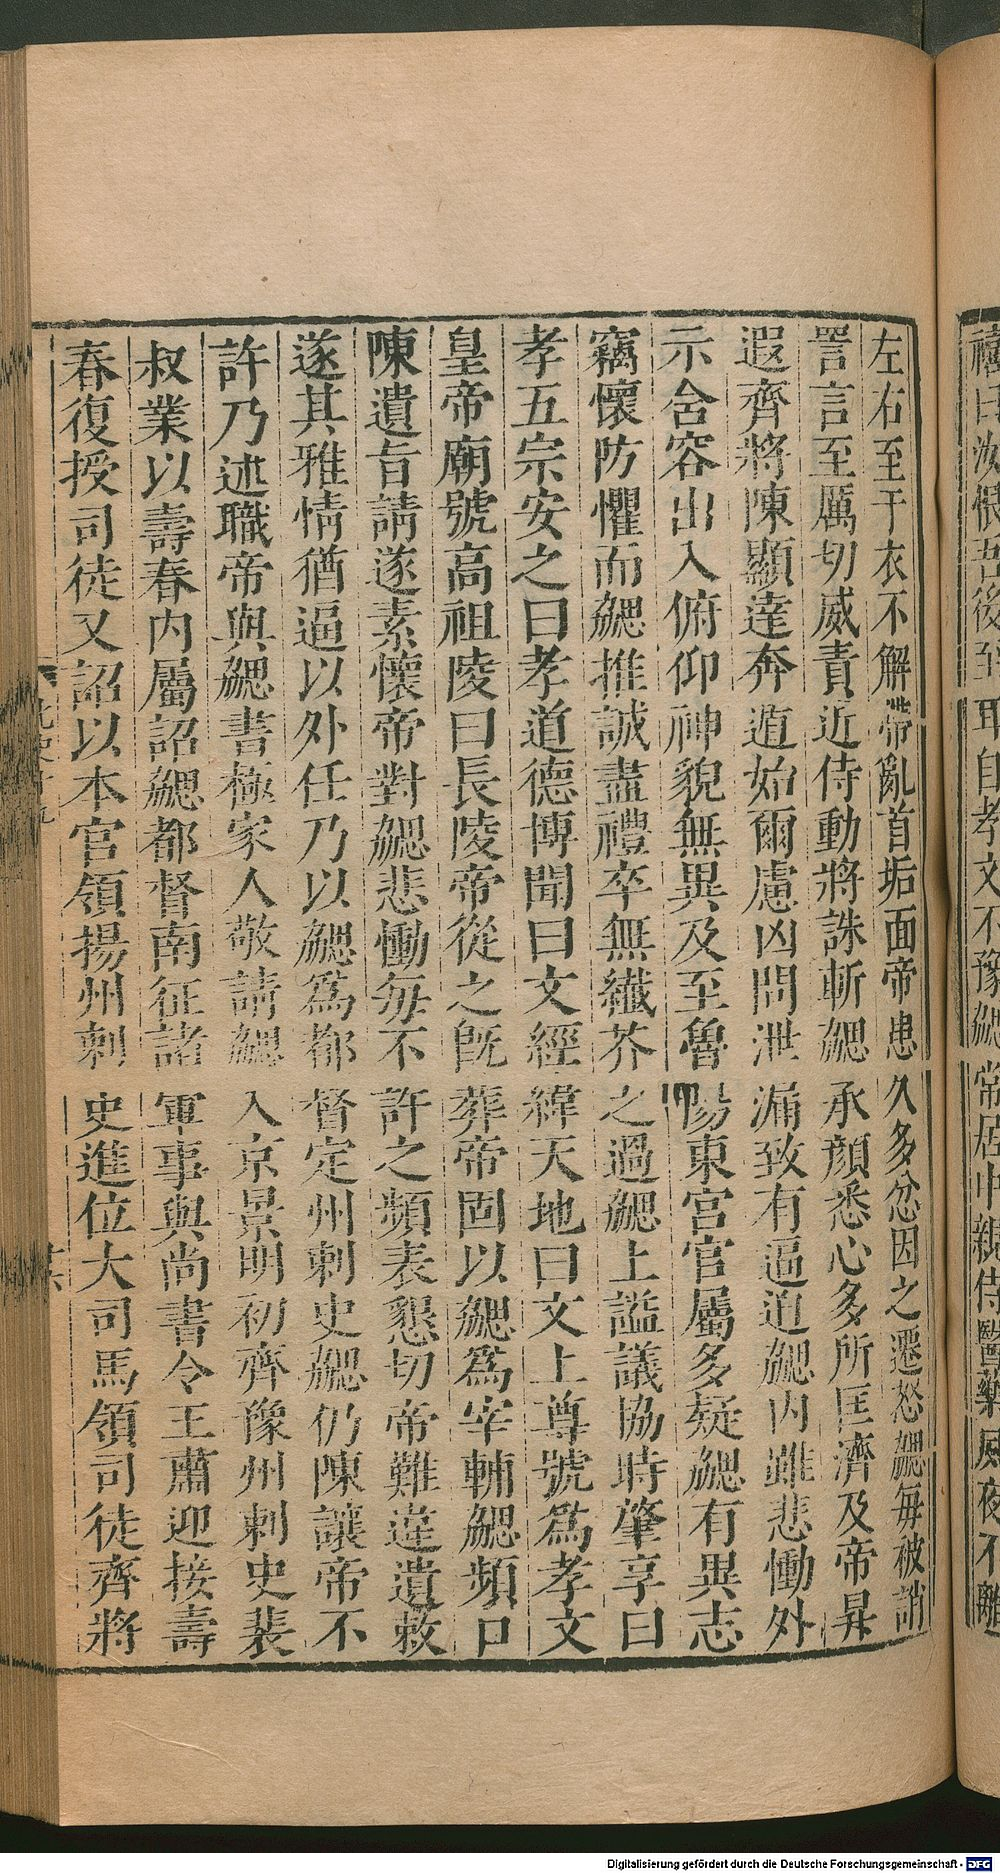 禧曰汝恨吾後至耳自孝文不豫勰常居中親侍醫藥夙夜不離
左右至于衣不解帶亂首垢面帝患久多忿因之遷怒勰每被誚
詈言至厲切威責近侍動將誅斬勰承顏悉心多所匡濟及帝昇
遐齊將陳顯達奔遁始爾慮凶問泄漏致有逼迫勰內雖悲慟外
示舍容出入俯仰神貌無異及至魯陽東宮官屬多疑勰有異志
竊懷防懼而勰推誠盡禮卒無纖芥之過勰上謚議協時肇享曰
孝五宗安之曰孝道德博聞曰文經緯天地曰文上尊號爲孝文
皇帝廟號高祖陵曰長陵帝從之旣葬帝固以勰爲宰輔勰頻口
陳遺旨請遂素懷帝對勰悲慟每不許之頻表懇切帝難違遺敕
遂其雅情猶逼以外任乃以勰爲都督定州刺史勰仍陳讓帝不
許乃述職帝與勰書極家人敬請勰入京景明初齊豫州刺史裴
叔業以壽春內屬詔勰都督南征諸軍事與尚書令王肅迎接壽
春復授司徒又詔以本官領揚州刺史進位大司馬領司徒齊將
北史十九
Digitalisierung gefördert durch die Deutsche Forschungsgemeinschaft - DFG